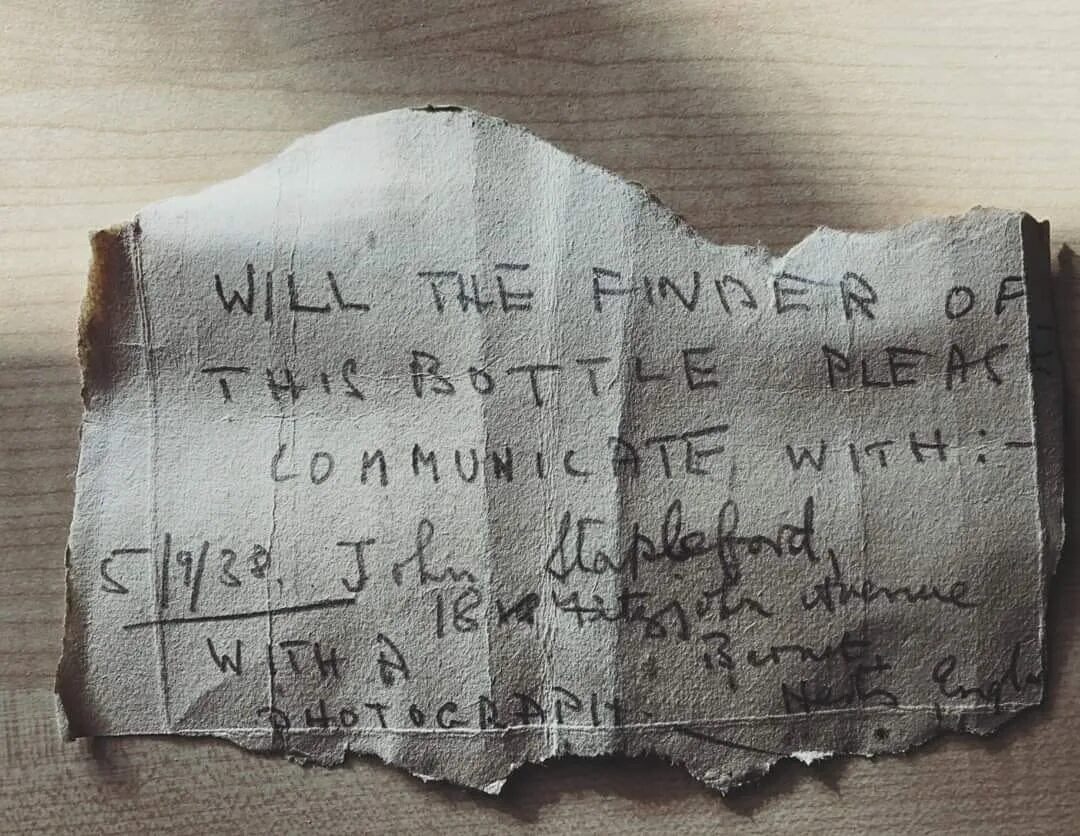 WILL THE FINDER OF
THIS BOTTLE PLEAS
COMMUNICATE WITH:-
5/9/38. John Stapleford,
18 Fitzjohn Avenue
WITH A Barnet
PHOTOGRAPH. Herts Engla